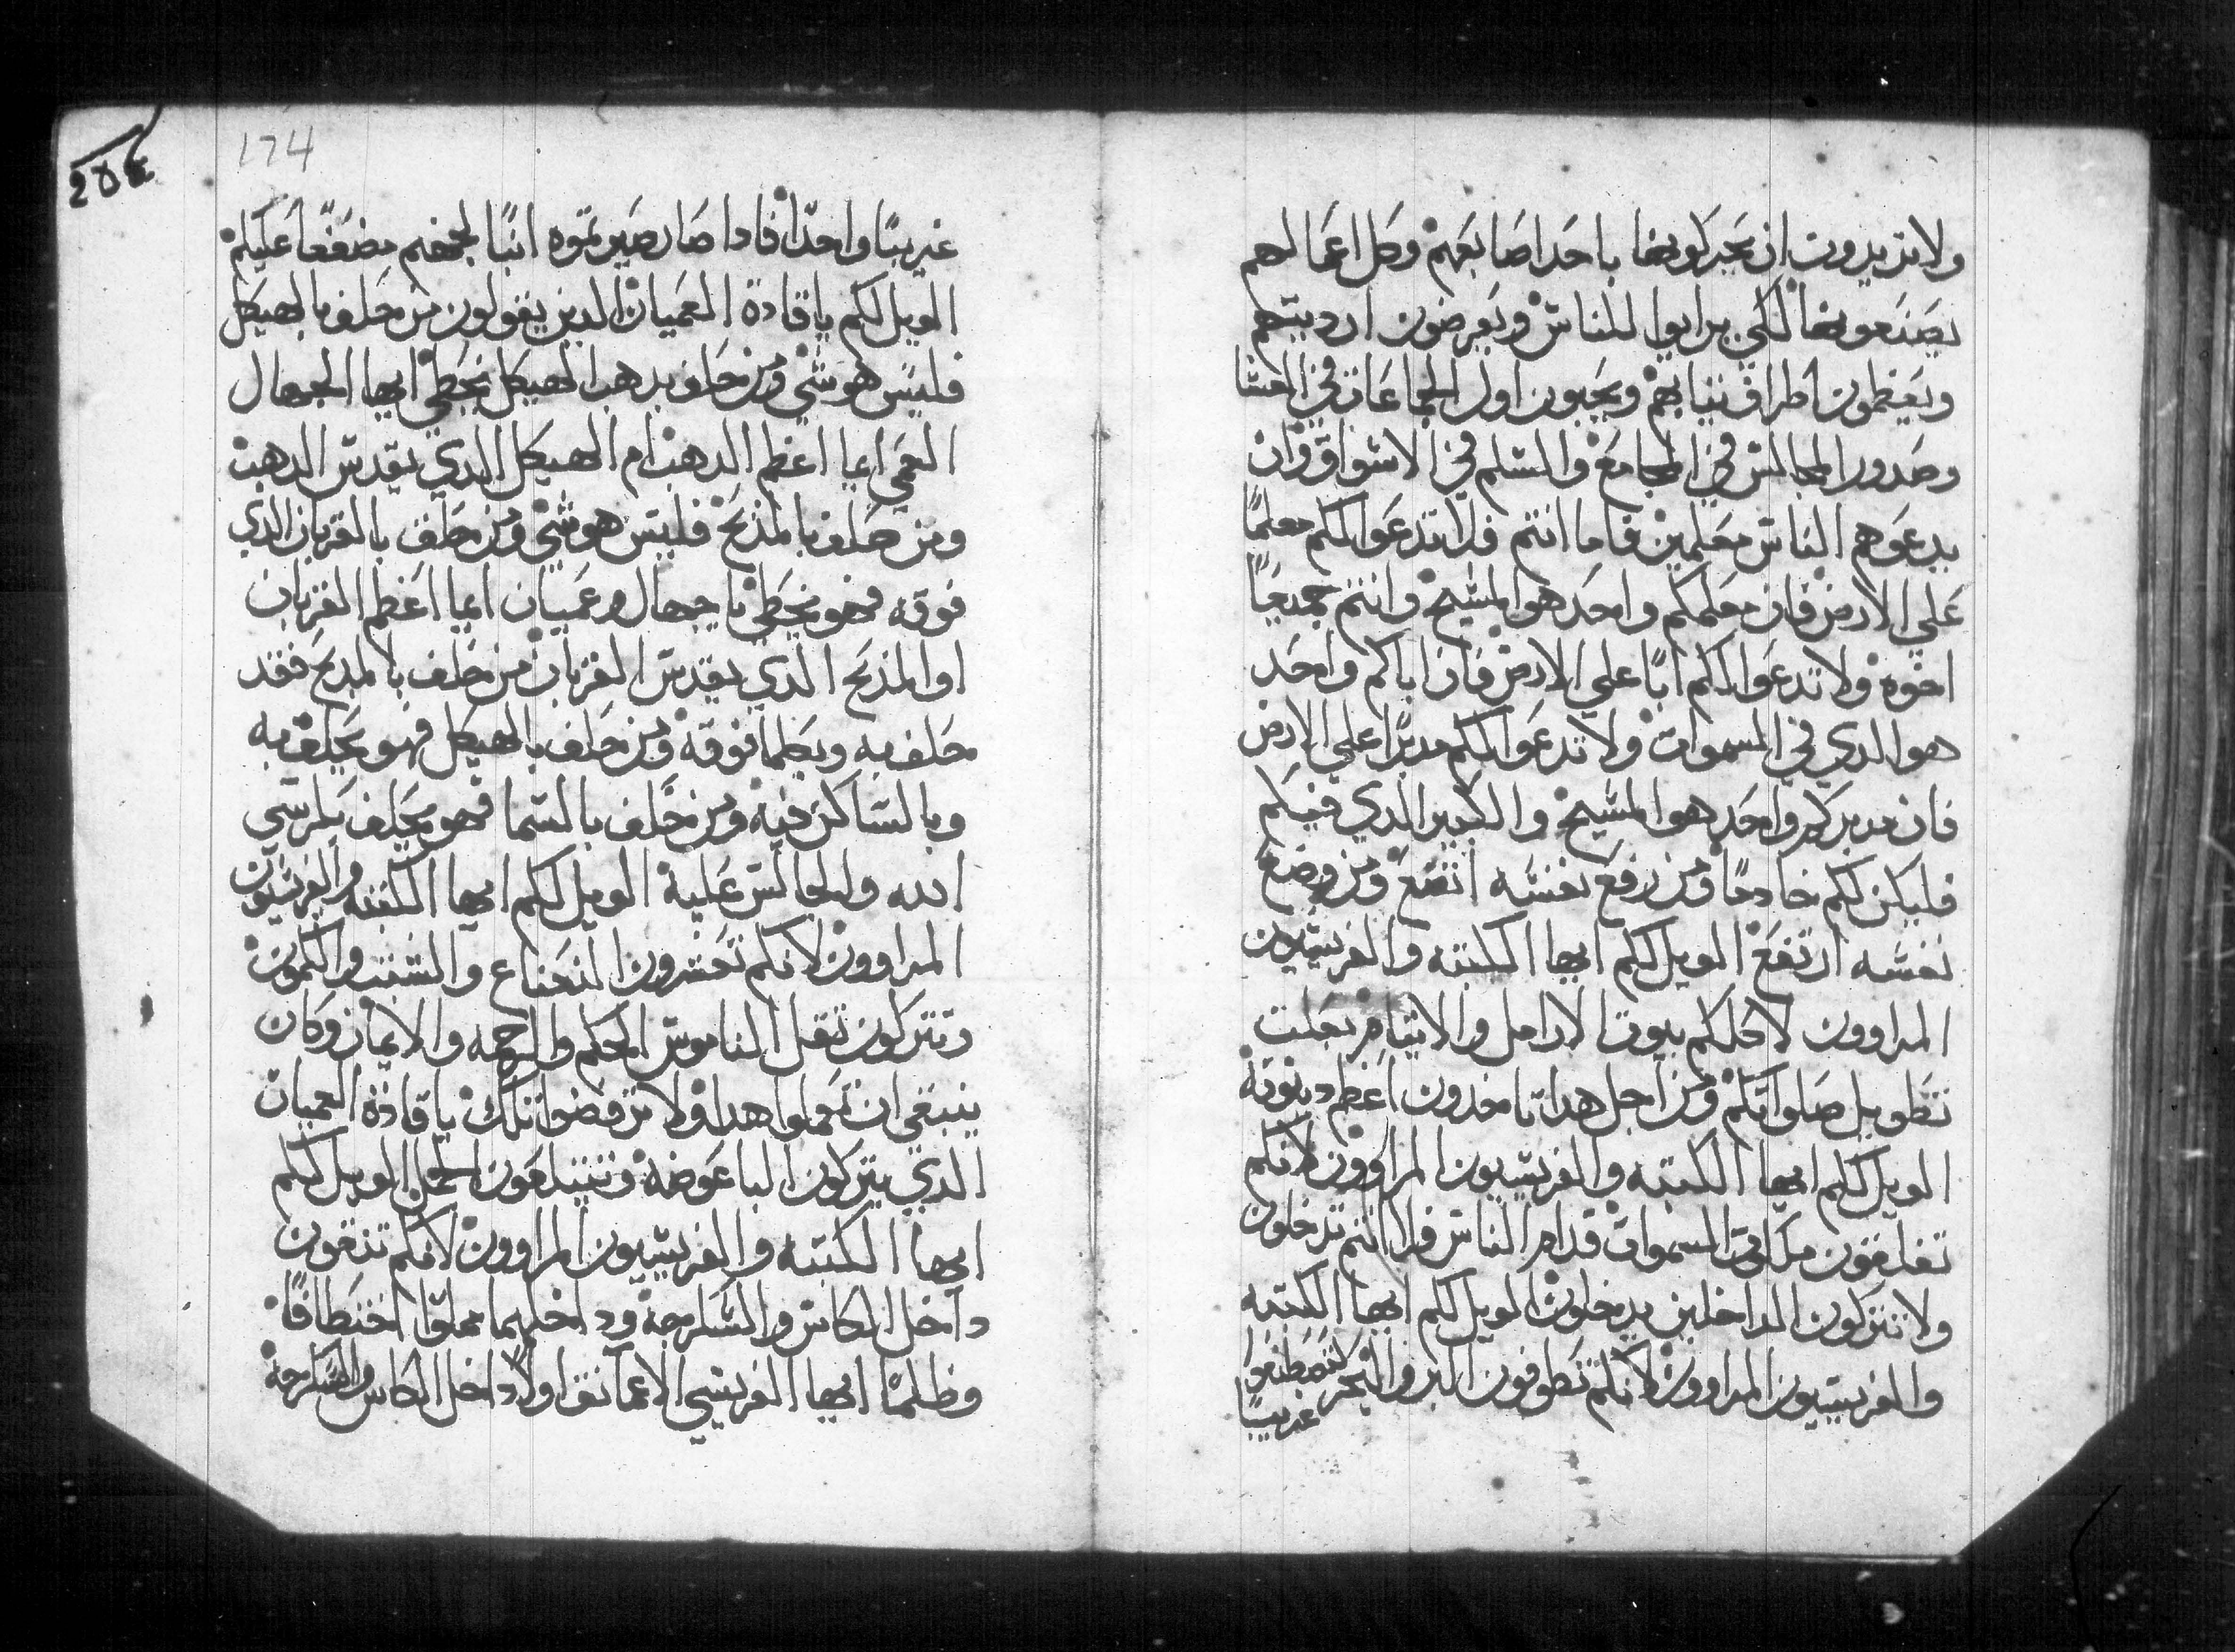 ولا يريدون ان يحركونها باحد اصابعهم وكل اعمالهم
يصنعونها لكي يرايوا للناس ويعرضون ارديتهم
ويعظمون اطراف ثيابهم ويحبون اول الجماعات في العشا
وصدور المجالس في المجامع والسلم في الاسواق وان
يدعوهم الناس معلمين فاما انتم فلا تدعوا لكم معلما
علي الارض فان معلمكم واحد هو المسيح وانتم جميعا
اخوه ولا تدعوا لكم ابا علي الارض فان اباكم واحد
هو الدي في السموات ولا تدعوا لكم مدبرا علي الارض
فان مدبركم واحد هو المسيح والكبير الدي فيكم
فليكن لكم خادما ومن رفع نفسه اتضع ومن وضع
نفسه ارتفع الويل لكم ايها الكتبه والفريسيون
المراوون لاكلكم بيوت الارامل والايتام بعلت
تطويل صلواتكم ومن اجل هدا تاخدون اعظم دينونة
الويل لكم ايها الكتبه والفريسيون المراوون لانكم
تغلقون ملكوت السموات قدام الناس فلا انتم تدخلون
ولا تتركون الداخلين يدخلون الويل لكم ايها الكتبه
والفريسيون المراوون لانكم تطوفون البر والبحر لتصطنعوا
غريبا
174
غريبا واحدا فادا صار صيرتموه ابنا لجهنم مضعفا عليكم
الويل لكم يا قادة العميان الدين يقولون من حلف بالهيكل
فليس هو شي ومن حلف بدهب الهيكل يخطي ايها الجهال
العمي ايما اعظم الدهب ام الهيكل الدي يقدس الدهب
ومن حلف بالمذبح فليس هو شي ومن حلف بالقربان الدي
فوقه فهو يخطي يا جهال وعميان ايما اعظم القربان
او المذبح الدي يقدس القربان من حلف بالمدبح فقد
حلف به وبكلما فوقه ومن حلف بالهيكل فهو يحلف به
وبالساكن فيه ومن حلف بالسما فهو يحلف بكرسي
الله والجالس علية الويل لكم ايها الكتبه والفريسيون
المراوون لانكم تعشرون النعناع والشبت والكمون
وتتركون ثقل الناموس الحكم والرحمه والايمان وكان
ينبغي ان تعملوا هدا ولا ترفضوا تلك يا قادة العميان
الدي يتركون الباعوضة وتبتلعون الجمل الويل لكم
ايها الكتبه والفريسيون المراوون لانكم تنقون
داخل الكاس والسكرجة وداخلهما مملوا اختطافا
وظلما ايها الفريسي الاعما نق اولا داخل الكاس والسكرجة